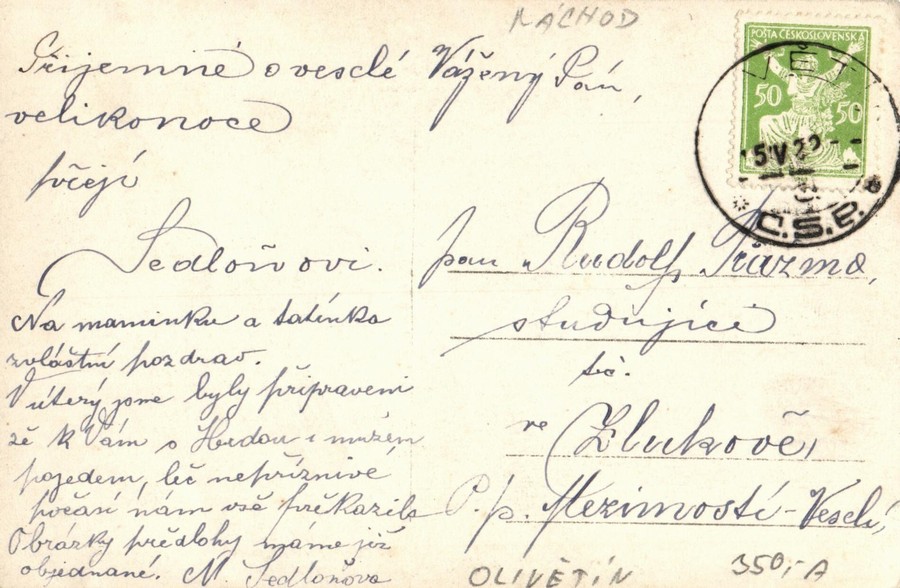 NÁCHOD
Příjemné a veselé
velikonoce
přejí
Sedloňovi.
Na maminku a tatínka
zvláštní pozdrav.
V úterý jsme byly připraveni
že k Vám s Hedou i mužem
pojedem, leč nepříznivé
počasí nám vše překazilo
Obrázky předlohy máme již
objednané. M Sedloňova
Vážený Pán,
pan Rudolf
studující
tč.
ve Zlukově,
P. p. Mezimostí-Veselí,
POŠTA ČESKOSLOVENSKÁ
50 50
Č.S.P.
OLIVĚTÍN
350,- A